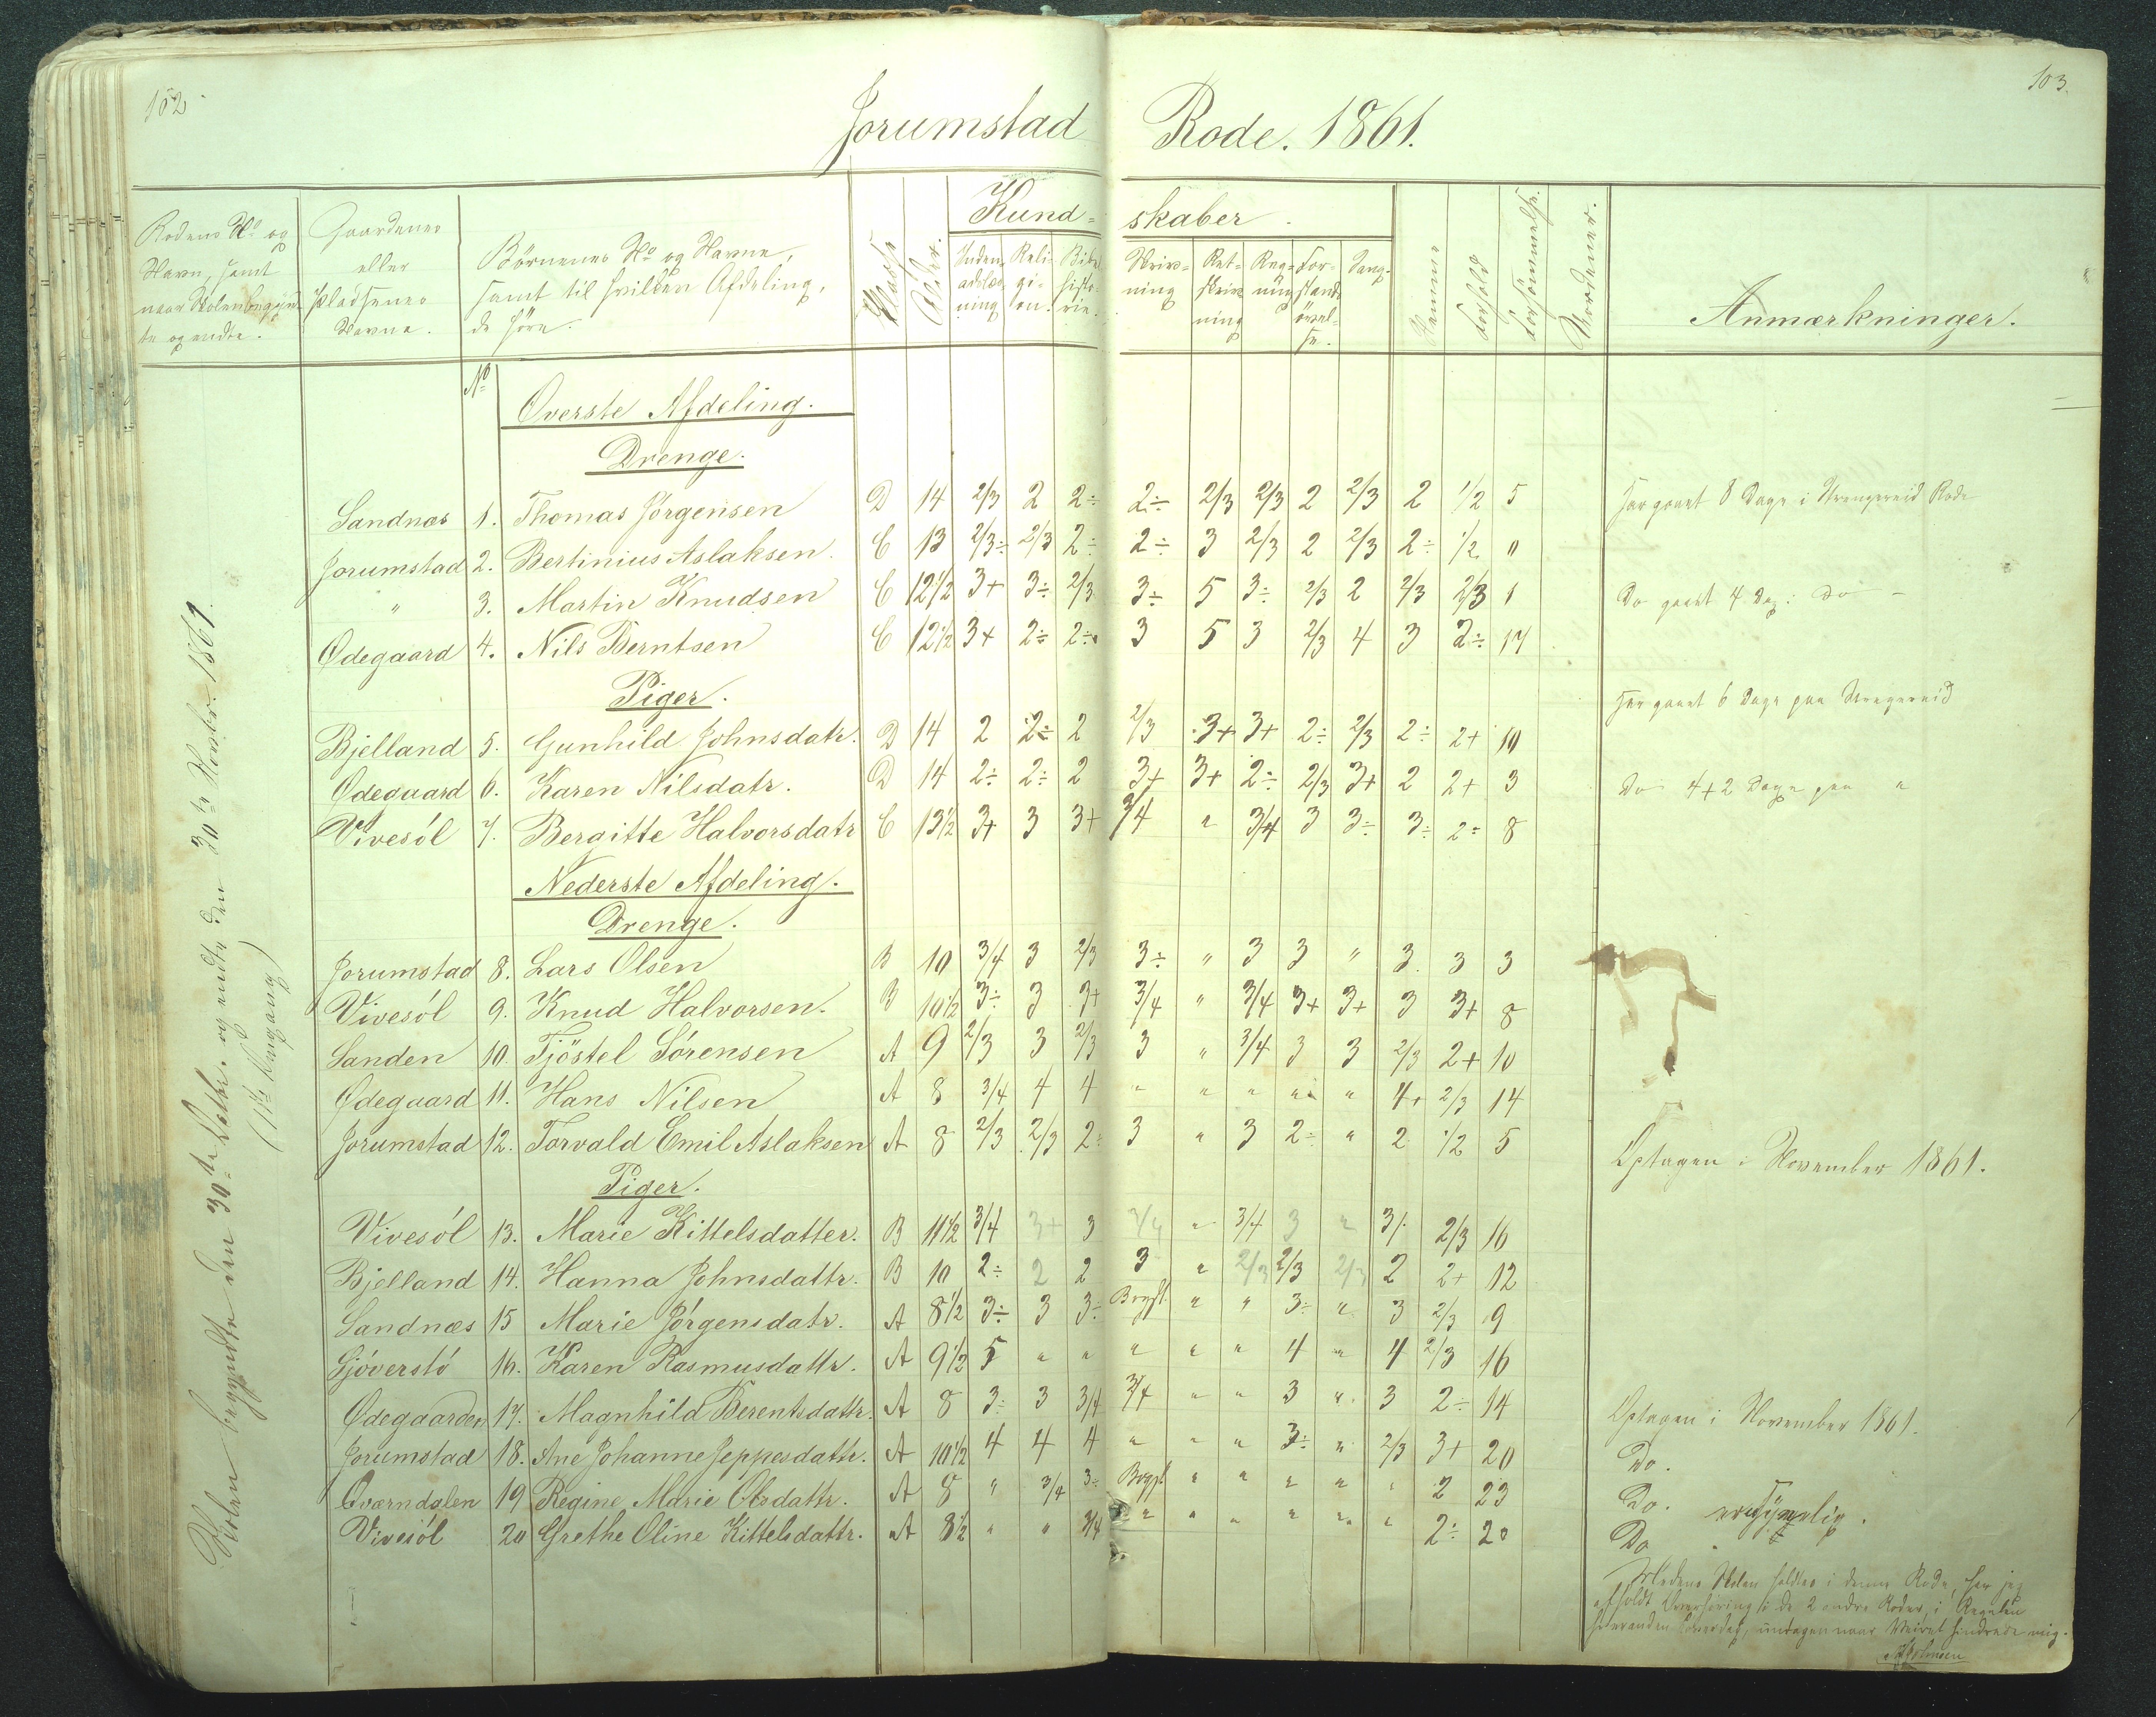 102
103.
Jorumstad Rode. 1861.
Rodens No og
Navn, samt
naar Skolen begynd-
te og endte.
Gaardenes
eller
Pladsenes
Navne.
Börnenes No og Navne,
samt til hvilken Afdeling,
de høre.
Klasse
Alder.
Kund-skaber.
Inden-
adslæs-
ning
Reli-
gi-
on.
Bibel
histo-
rie.
Skriv-
ning
Ret-
skriv
ning
Reg-
ning
For-
stands
övel-
se.
Sang.
Evner
Forhold
Forsömmelse.
Anmærkninger.
Skolen begyndte den 30te Octbr. og endte den 30te Novbr. 1861.
(1ste Omgang)
No
Överste Afdeling.
Drenge.
Sandnæs 1. Thomas Jörgensen D 14 2/3 2 2÷ 2÷ 2/3 2/3 2 2/3 2 1/2 5 Har gaaet 8 Dage i Strengereid Rode
Jorumstad 2. Bertinius Aslaksen. C 13 2/3÷ 2/3 2÷ 2÷ 3 2/3 2 2/3 2÷ 1/2 0
" 3. Martin Knudsen C 12 1/2 3+ 3÷ 2/3 3÷ 5 3÷ 2/3 2 2/3 2/3 1 Do gaaet 4 Dag: Do -
Ødegaard 4. Nils Berntsen C 12 1/2 3+ 2÷ 2÷ 3 5 3 2/3 4 3 2÷ 17
Piger.
Bjelland 5. Gunhild Johnsdatr. D 14 2 2÷ 2 2/3 3+ 3+ 2÷ 2/3 2÷ 2+ 10 Har gaaet 6 Dage paa Strengereid
Ødegaard 6. Karen Nilsdatr. D 14 2÷ 2÷ 2 3+ 3+ 2÷ 2/3 3+ 2 2+ 3 Do 4+2 Dage paa "
Vivesöl 7. Bergitte Halvorsdatr C 13 1/2 3+ 3 3+ 3/4 " 3/4 3 3÷ 3÷ 2÷ 8
Nederste Afdeling.
Drenge.
Jorumstad 8. Lars Olsen B 10 3/4 3 2/3 3÷ " 3 3 " 3. 3 3
Vivesöl 9. Knud Halvorsen. B 10 1/2 3÷ 3 3+ 3/4 " 3/4 3+ 3+ 3 3+ 8
Sanden 10. Tjöstel Sörensen A 9 2/3 3 2/3 3 " 3/4 3 3 2/3 2+ 10
Ødegaard 11. Hans Nilsen A 8 3/4 4 4 " " " " " 4+ 2/3 14
Jorumstad 12. Torvald Emil Aslaksen A 8 2/3 2/3 2÷ 3 " 3 2÷ " 2 1/2 5 Optagen i November 1861.
Piger.
Vivesöl 13. Marie Kittelsdatter. B 11 1/2 3/4 3+ 3 3/4 " 3/4 3 " 3/. 2/3 16
Bjelland 14. Hanna Johnsdattr. B 10 2÷ 2 2 3 " 2/3 2/3 2/3 2 2+ 12
Sandnæs 15 Marie Jörgensdatr. A 8 1/2 3÷ 3 3÷ Bogst. " " 3÷ " 3 2/3 9
Sjöverstö 16. Karen Rasmusdattr. A 9 1/2 5 " " " " " 4 " 4 2/3 16
Ødegaarden 17. Magnhild Berentsdattr. A 8 3÷ 3 3/4 3/4 " " 3 " 3 2÷ 14 Optagen i November 1861.
Jorumstad 18. Ane Johanne Jeppesdattr. A 10 1/2 4 4 4 " " " 3÷ " 2/3 3+ 20 Do.
Qværndalen 19 Regine Marie Olsdattr. A 8 " 3/4 3÷ Bogst " " " " " 2 23 Do.
Vivesöl 20 Grethe Oline Kittelsdattr. A 8 1/2 " " 3/4 " " " " " " 2÷ 20 Do
Medens Skolen holdtes i denne Rode, har jeg
afholdt Overhöring i de 2 andre Roder, i Regelen
hveranden Löverdag, undtagen naar Veiret hindrede mig.